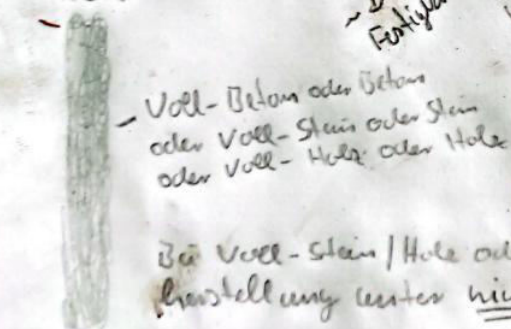 Festigk
Voll-Beton oder Beton
oder Voll-Stein oder Stein
oder Voll-Holz oder Holz
Bei Voll-Stein/Holz od
Herstellung unter nic